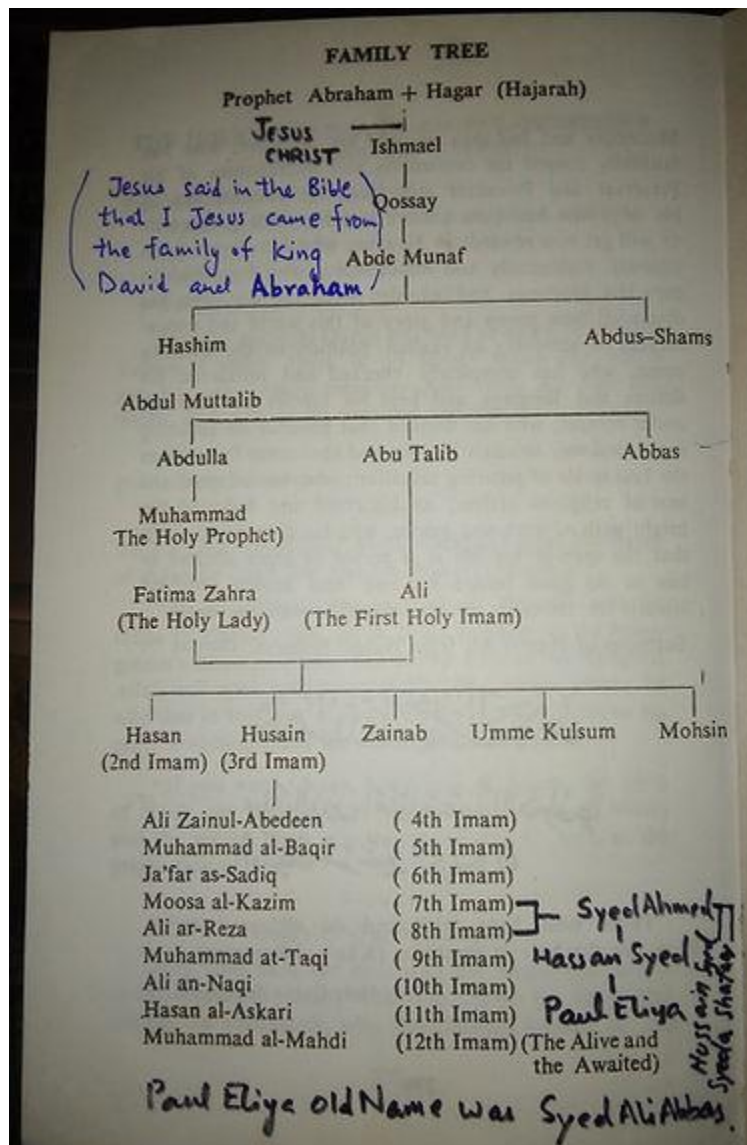 FAMILY TREE
Prophet Abraham + Hagar (Hajarah)
JESUS
CHRIST
Ishmael
Jesus said in the Bible
that I Jesus came from
the family of King
David and Abraham
Qossay
Abde Munaf
Hashim
Abdus-Shams
Abdul Muttalib
Abdulla Abu Talib Abbas
Muhammad
The Holy Prophet)
Fatima Zahra Ali
(The Holy Lady) (The First Holy Imam)
Hasan Husain Zainab Umme Kulsum Mohsin
(2nd Imam) (3rd Imam)
Ali Zainul-Abedeen ( 4th Imam)
Muhammad al-Baqir ( 5th Imam)
Ja'far as-Sadiq ( 6th Imam)
Moosa al-Kazim ( 7th Imam) Syed Ahmed
Ali ar-Reza ( 8th Imam)
Muhammad at-Taqi ( 9th Imam) Hassan Syed
Ali an-Naqi (10th Imam)
Hasan al-Askari (11th Imam) Paul Eliya
Muhammad al-Mahdi (12th Imam) (The Alive and
the Awaited)
Hussain Syed
Syeda
Paul Eliya old Name was Syed Ali Abbas.